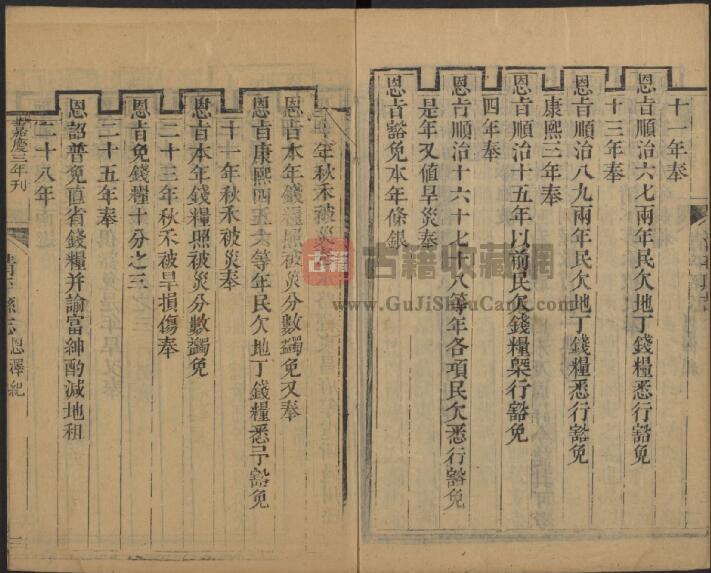 十一年奉
恩㫖順治六七兩年民欠地丁錢糧悉行豁免
十三年奉
恩㫖順治八九兩年民欠地丁錢糧悉行豁免
康熙三年奉
恩㫖順治十五年以前民欠錢糧槩行豁免
四年奉
恩㫖順治十六十七十八等年各項民欠悉行豁免
是年又值旱災奉
恩㫖豁免本年條銀
年秋禾被災
恩㫖本年錢糧照被災分數蠲免又奉
恩㫖康熙四五六等年民欠地丁錢糧悉予豁免
十一年秋禾被災奉
恩㫖本年錢糧照被災分數蠲免
二十三年秋禾被旱損傷奉
恩㫖免錢糧十分之三
二十五年奉
恩詔普免直省錢糧并諭富紳酌減地租
二十八年
嘉慶三年刊
恩澤紀
古籍收藏網
www.GuJiShouCang.com